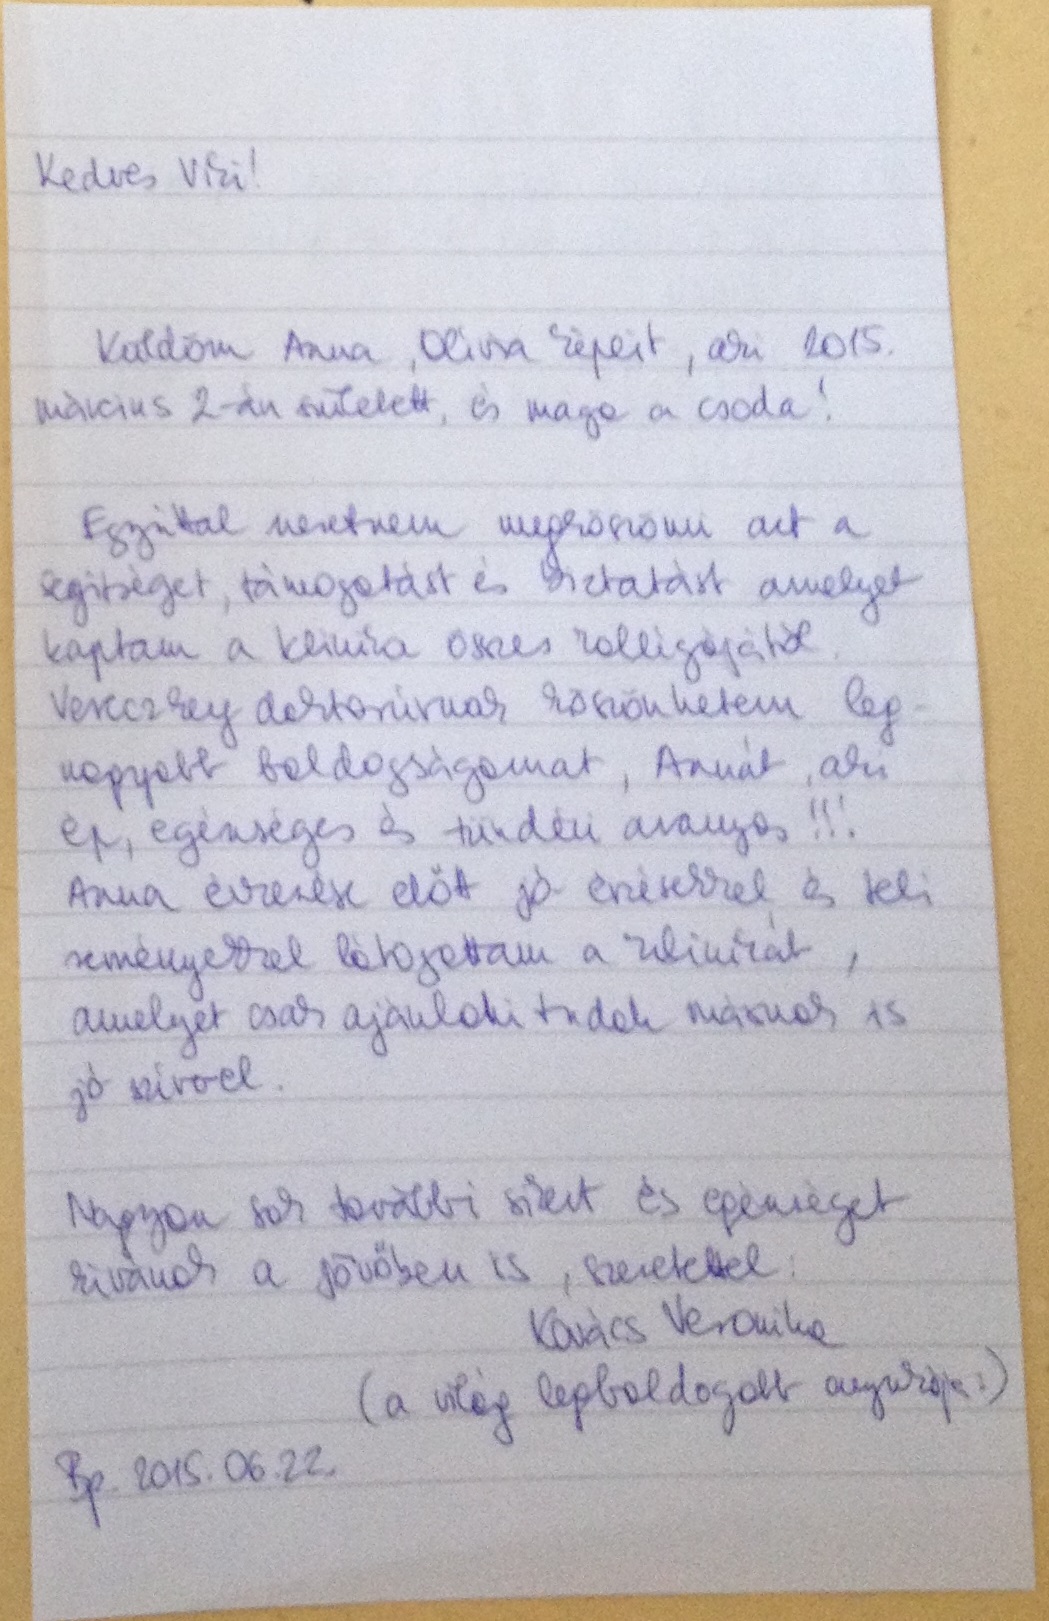 Kedves Viki!
Küldöm Anna, Olivia képeit, aki 2015.
március 2-án született, és maga a csoda!
Egyúttal szeretném megköszönni azt a
segítséget, támogatást és biztatást amelyet
kaptam a klinika összes kollégájától.
Vereczkey doktorúrnak köszönhetem leg-
nagyobb boldogságomat, Annát, aki
ép, egészséges és tündéri aranyos!!!
Anna érkezése előtt jó érzésekkel és teli
reményekkel látogattam a klinikát,
amelyet csak ajánlani tudok másnak is
jó szívvel.
Nagyon sok további sikert és egészséget
kívánok a jövőben is, szeretettel:
Kovács Veronika
(a világ legboldogabb anyukája:)
Bp. 2015.06.22.